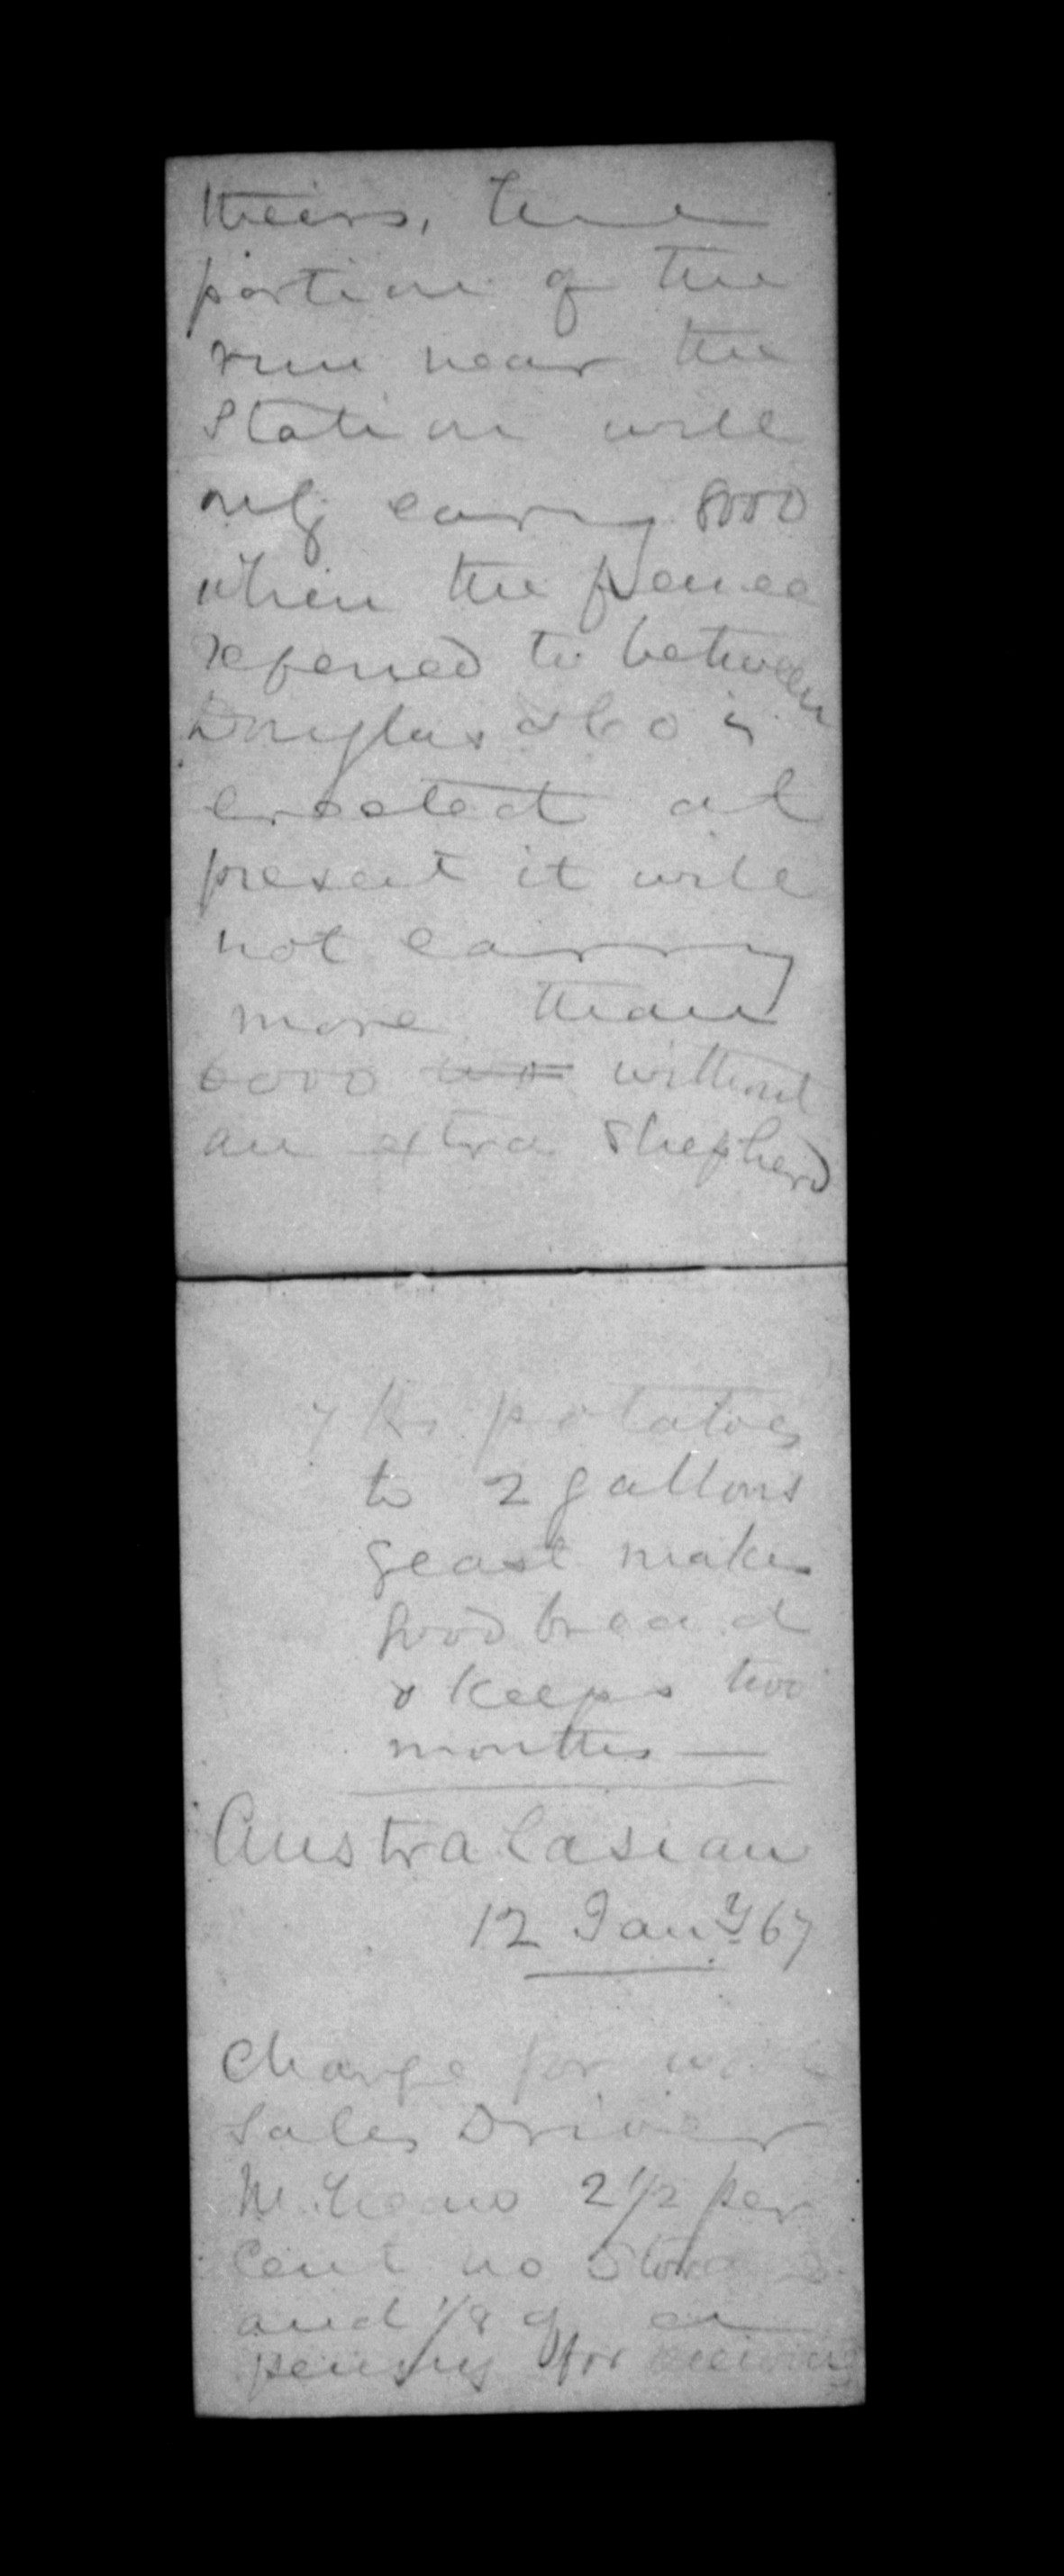 theirs, the
portion of the
run near the
Station will
only carry 8000
when the fence
referred to between
Douglas & Co is
erected at
present it will
not carry
more than
6000 without
an extra Shepherd
7 lbs potatoes
to 2 gallons
yeast makes
good bread
& keeps two
months —
Australasian
12 Jany 67
Charge for
Sales Driver
2 1/2 per
cent no
and 1/8 of a
penny for